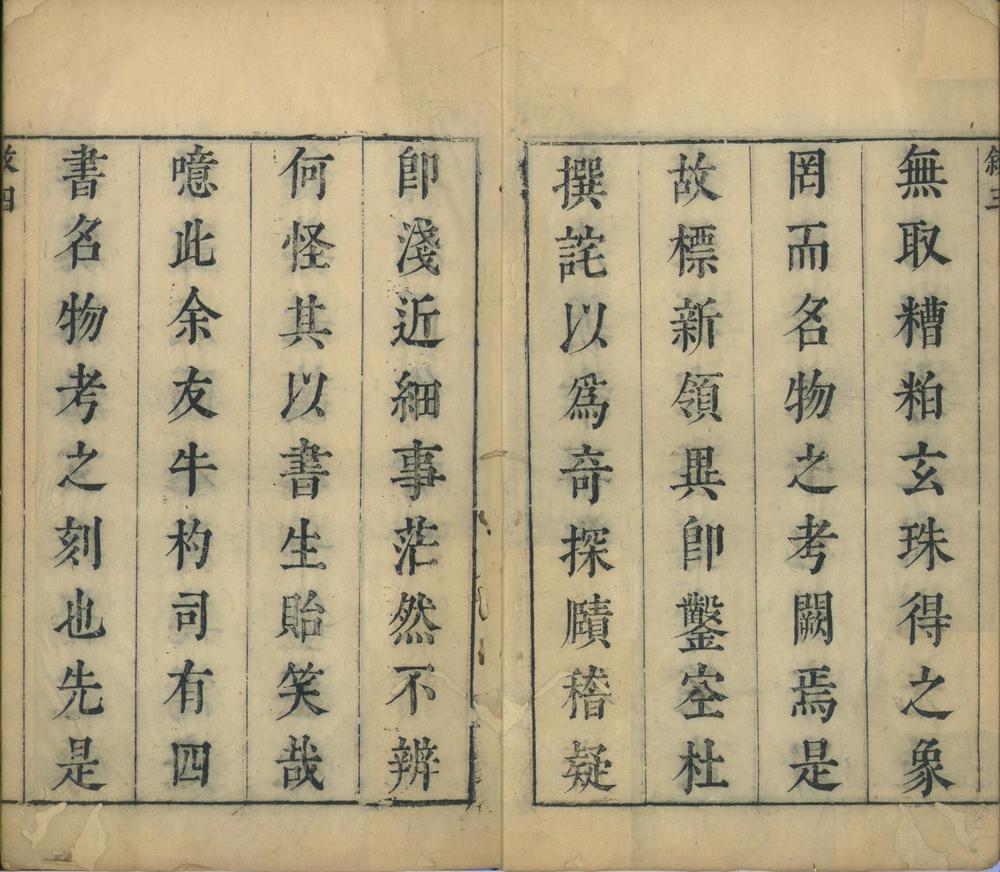 敘三
無取糟粕玄珠得之象
罔而名物之考闕焉是
故標新領異卽鑿空杜
撰詫以爲奇探賾稽疑
卽淺近細事茫然不辨
何怪其以書生貽笑哉
噫此余友牛杓司有四
書名物考之刻也先是
敘四